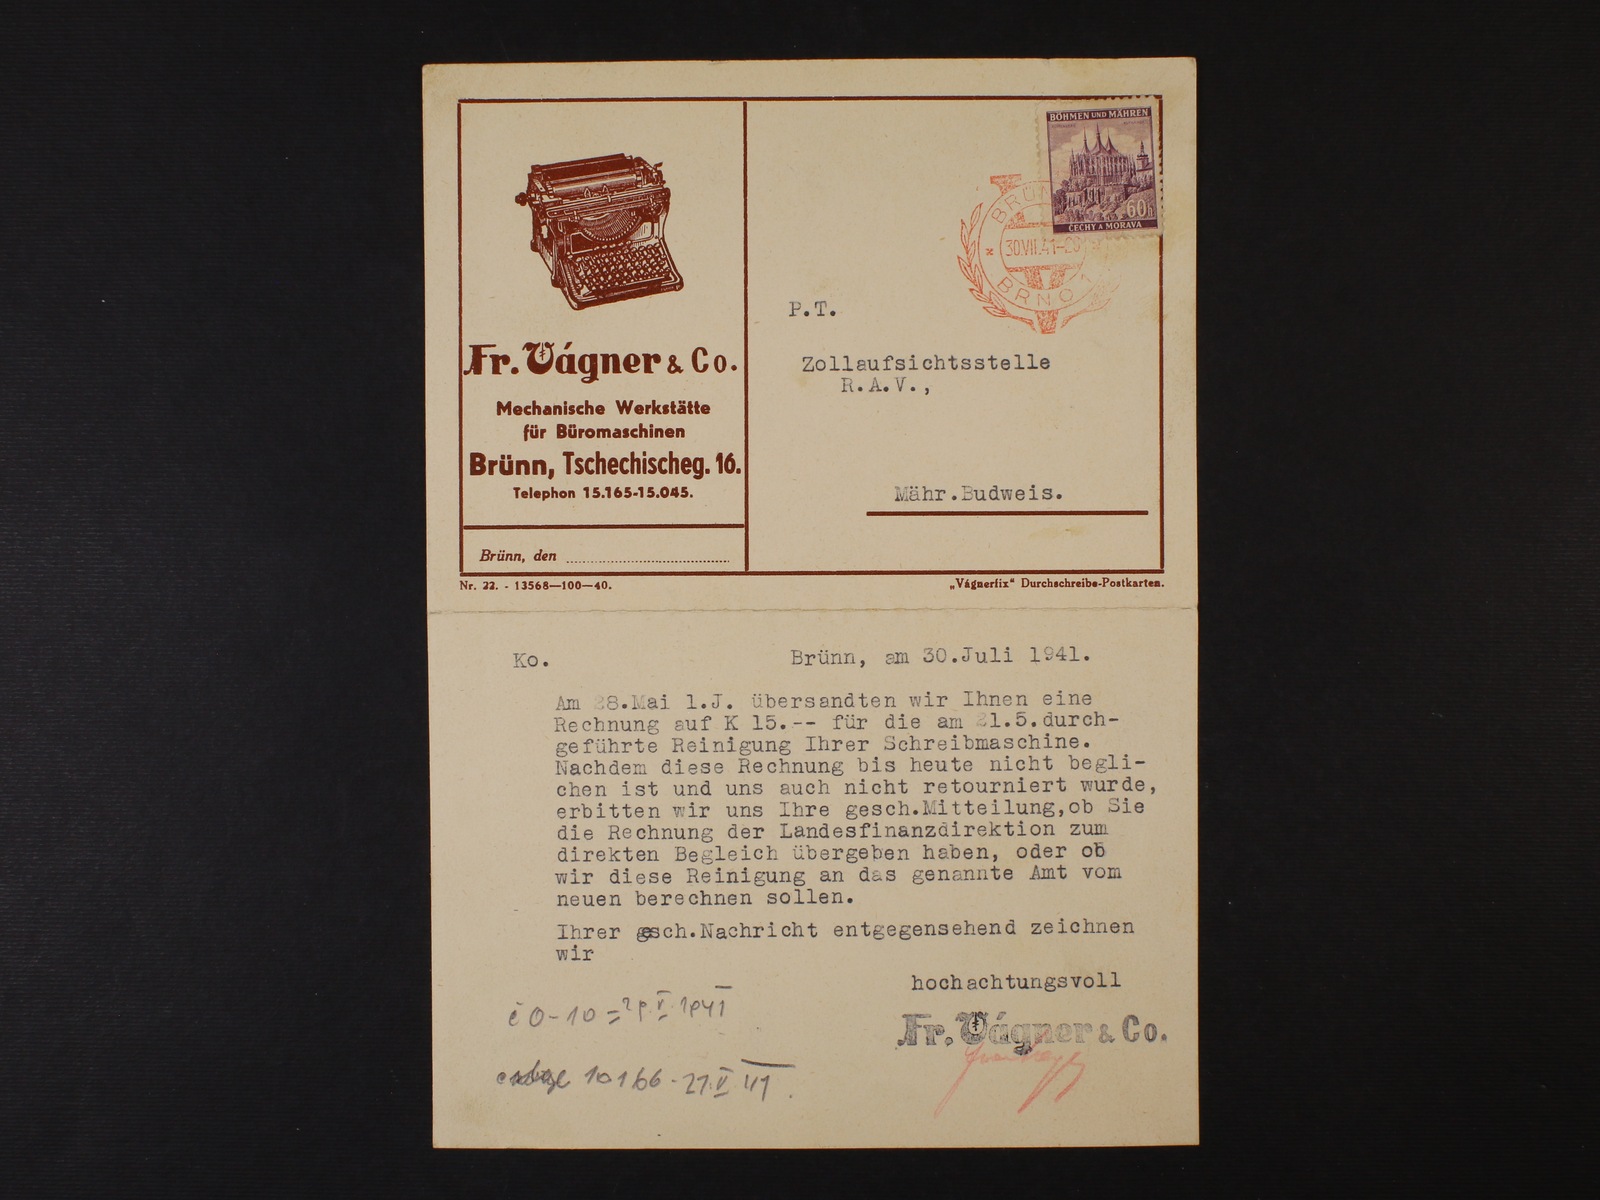 Fr. Vágner & Co.
Mechanische Werkstätte
für Büromaschinen
Brünn, Tschechischeg. 16.
Telephon 15.165-15.045.
Brünn, den
Nr. 22. - 13568—100—40.
BÖHMEN UND MÄHREN
60h
ČECHY A MORAVA
BRÜN
30.VII.41-20
BRNO 1
P.T.
Zollaufsichtsstelle
R.A.V.,
Mähr.Budweis.
„Vágnerfix" Durchschreibe-Postkarten.
Ko.
Brünn, am 30.Juli 1941.
Am 28.Mai l.J. übersandten wir Ihnen eine
Rechnung auf K 15.-- für die am 21.5.durch-
geführte Reinigung Ihrer Schreibmaschine.
Nachdem diese Rechnung bis heute nicht begli-
chen ist und uns auch nicht retourniert wurde,
erbitten wir uns Ihre gesch.Mitteilung,ob Sie
die Rechnung der Landesfinanzdirektion zum
direkten Begleich übergeben haben, oder ob
wir diese Reinigung an das genannte Amt vom
neuen berechnen sollen.
Ihrer gesch.Nachricht entgegensehend zeichnen
wir
hochachtungsvoll
Fr. Vágner & Co.
č 0-10 = 29.V.1941
10166 - 21.V 41.